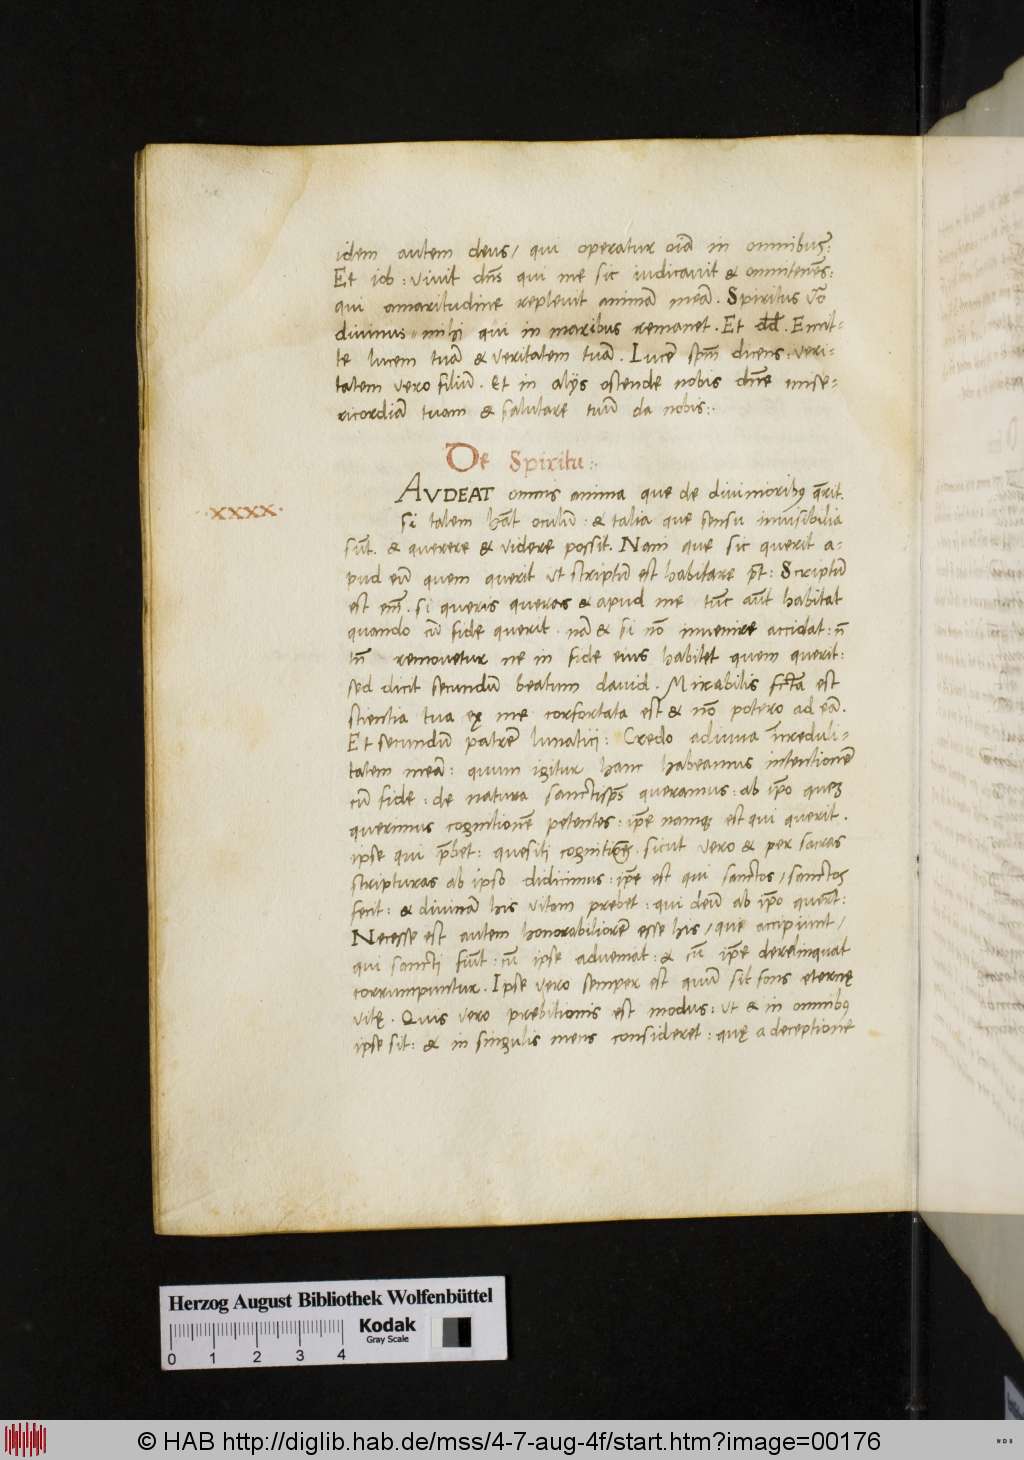 idem autem deus / qui operatur oīa in omnibus:
Et iob : vivit dn̄s qui me sic iudicavit & omnitenēs:
qui amaritudine replevit animā meā. Spiritus v̄o
divinus mihi qui in naribus remanet. Et dd̄. Emit-
te lucem tuā & veritatem tuā. Lucē sp̄m dicens. veri-
tatem vero filiū. Et in alijs ostende nobis dn̄e mise-
ricordiā tuam & salutare tuū da nobis:.
De Spiritu:.
.xxxx.
AVDEAT omnis anima que de divinioribꝰ q̄rit.
si talem h̄at oculū : & talia que sensu invisibilia
sūt. & querere & videre possit. Nam que sic querit a-
pud eū quem querit ut scriptū est habitare p̄t: Scriptū
est em̄. si queris queres & apud me tūc aūt habitat
quando cū fide querit. nā & si nō invenire accidat: n̄
tn̄ removetur ne in fide eius habitet quem querit:
sed dicit secundū beatum david. Mirabilis fc̄ta est
scientia tua ex me confortata est & nō potero ad eā.
Et secundū patrē lunatici: Credo adiuva īncreduli-
tatem meā: quum igitur hanc habeamus intentionē
cū fide: de natura sancti sp̄s queramus: ab ip̄o quē
querimus cognitionē petentes: ip̄e namq est qui querit.
ipse qui p̄bet: quesiti cognitionē. sicut vero & per sacras
scripturas ab ipso didicimus: ip̄e est qui sanctos / sanctos
fecit: & divinā his vitam prebet: qui deū ab ip̄o querūt:
Necesse est autem honorabiliorē esse his / que accipiunt /
qui sancti fiūt: cū ipse adveniat: & cū ip̄e derelinquat
corrumpuntur. Ipse vero semper est quū sit fons eternę
vitę. Quis vero prebitionis est modus: ut & in omnibꝰ
ipse sit: & in singulis mens consideret: quę a deceptione
Herzog August Bibliothek Wolfenbüttel
Kodak
Gray Scale
0 1 2 3 4
© HAB http://diglib.hab.de/mss/4-7-aug-4f/start.htm?image=00176